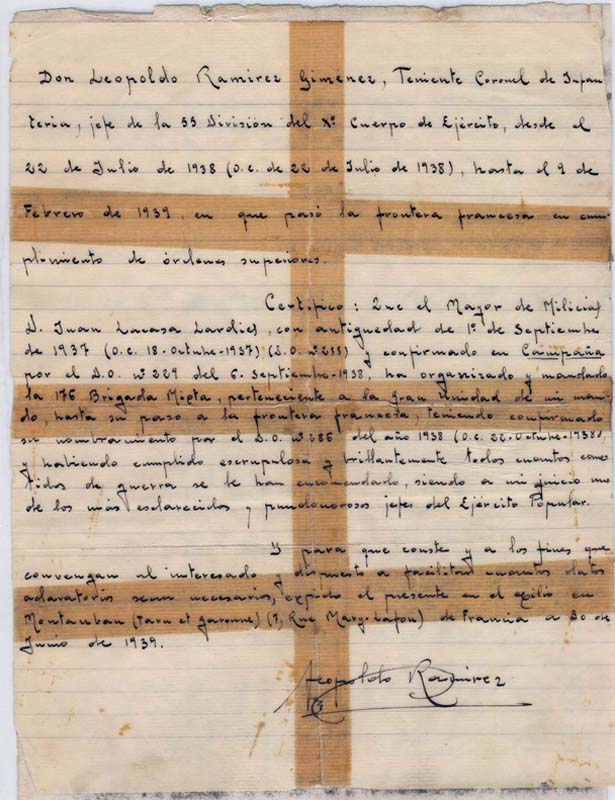 Don Leopoldo Ramirez Giménez, Teniente Coronel de Infan
teria, jefe de la 55 División del Xº Cuerpo de Ejército, desde el
22 de Julio de 1938 (O.C. de 22 de Julio de 1938), hasta el 9 de
Febrero de 1939, en que pasó la frontera francesa en cum-
plimiento de órdenes superiores.
Certifico: Que el Mayor de Milicias
D. Juan Lacasa Lardies, con antiguedad de 1º de Septiembre
de 1937 (O.C. 18-Octubre-1937) (D.O. nº 255) y confirmado en Campaña
por el D.O. nº 229 del 6-Septiembre-1938, ha organizado y mandado
la 176 Brigada Mixta, perteneciente a la gran unidad de mi man-
do, hasta su paso a la frontera francesa, teniendo confirmado
su nombramiento por el D.O. nº 286 del año 1938 (O.C. 22-Octubre-1938),
y habiendo cumplido escrupulosa y brillantemente todos cuantos come
tidos de guerra se le han encomendado, siendo a mi juicio uno
de los más esclarecidos y pundonorosos jefes del Ejército Popular.
Y para que conste y a los fines que
convengan al interesado y dispuesto a facilitar cuantos datos
aclaratorios sean necesarios, expido el presente en el exilio en
Montauban (Tarn et Garonne) (7, Rue Mary-Lafon) de Francia a 30 de
Junio de 1939.
Leopoldo Ramirez